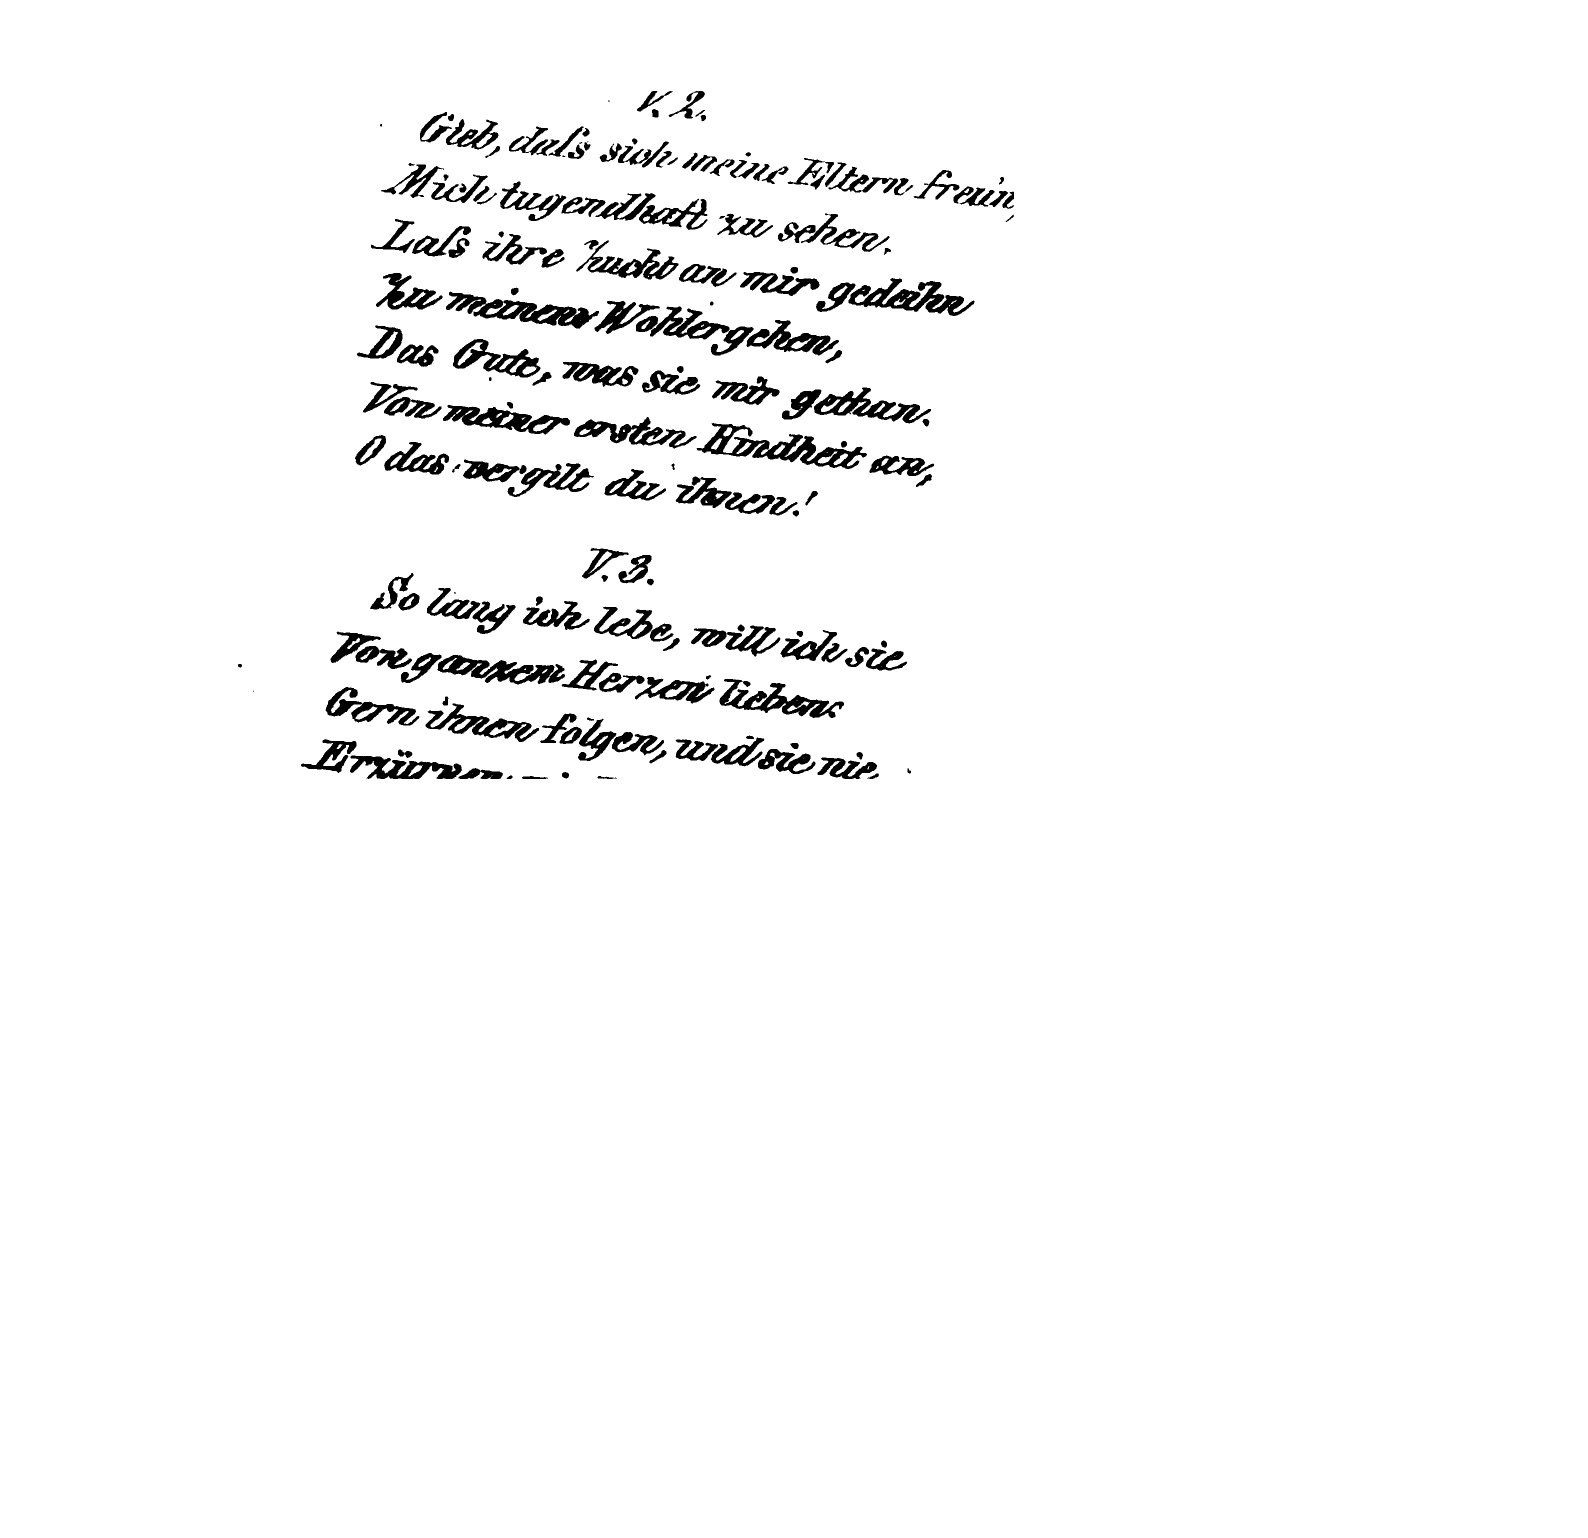 V. 2.
Gieb, daſs sich meine Eltern freun,
Mich tugendhaft zu sehen.
Laſs ihre Zucht an mir gedeihn
Zu meinem Wohlergehen,
Das Gute, was sie mir gethan.
Von meiner ersten Kindheit an,
O das vergilt du ihnen!
V. 3.
So lang ich lebe, will ich sie
Von ganzem Herzen lieben:
Gern ihnen folgen, und sie nie
Erzürnen